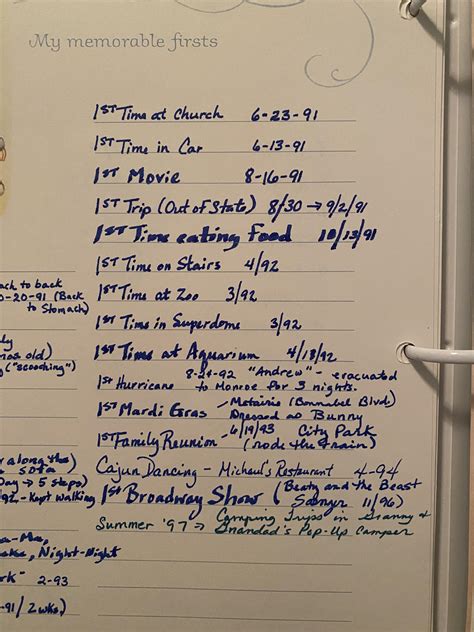 My memorable firsts
1ST Time at Church 6-23-91
1ST Time in Car 6-13-91
1ST Movie 8-16-91
1ST Trip (Out of State) 8/30 → 9/2/91
1ST Time eating Food 10/13/91
1ST Time on Stairs 4/92
1ST Time at Zoo 3/92
1ST Time in Superdome 3/92
1ST Time at Aquarium 4/18/92
1st Hurricane 8-24-92 "Andrew" - evacuated
to Monroe for 3 nights.
1ST Mardi Gras - Metairie (Bonnabel Blvd.)
Dressed as Bunny
1ST Family Reunion - 6/19/93 City Park
(rode the train)
Cajun Dancing - Micheul's Restaurant 4-94
1st Broadway Show (Beaty and the Beast
Saenger 11/96)
Summer '97 → Camping Trips in Granny &
Grandad's Pop-Up Camper
ach to back
0-20-91 (Back
to Stomach)
old)
("scooching")
along the)
sofa)
Day → 5 steps)
92 - Kept walking
Night-Night
2-93
-91/2wks)